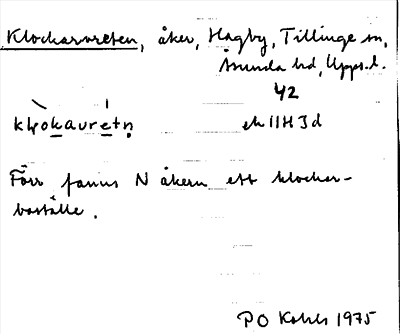 Klockarvreten, åker, Hagby, Tillinge sn,
Åsunda hd, Upps. l.
42
ek 11H3d
Förr fanns N åkern ett klockar-
boställe.
PO 1975